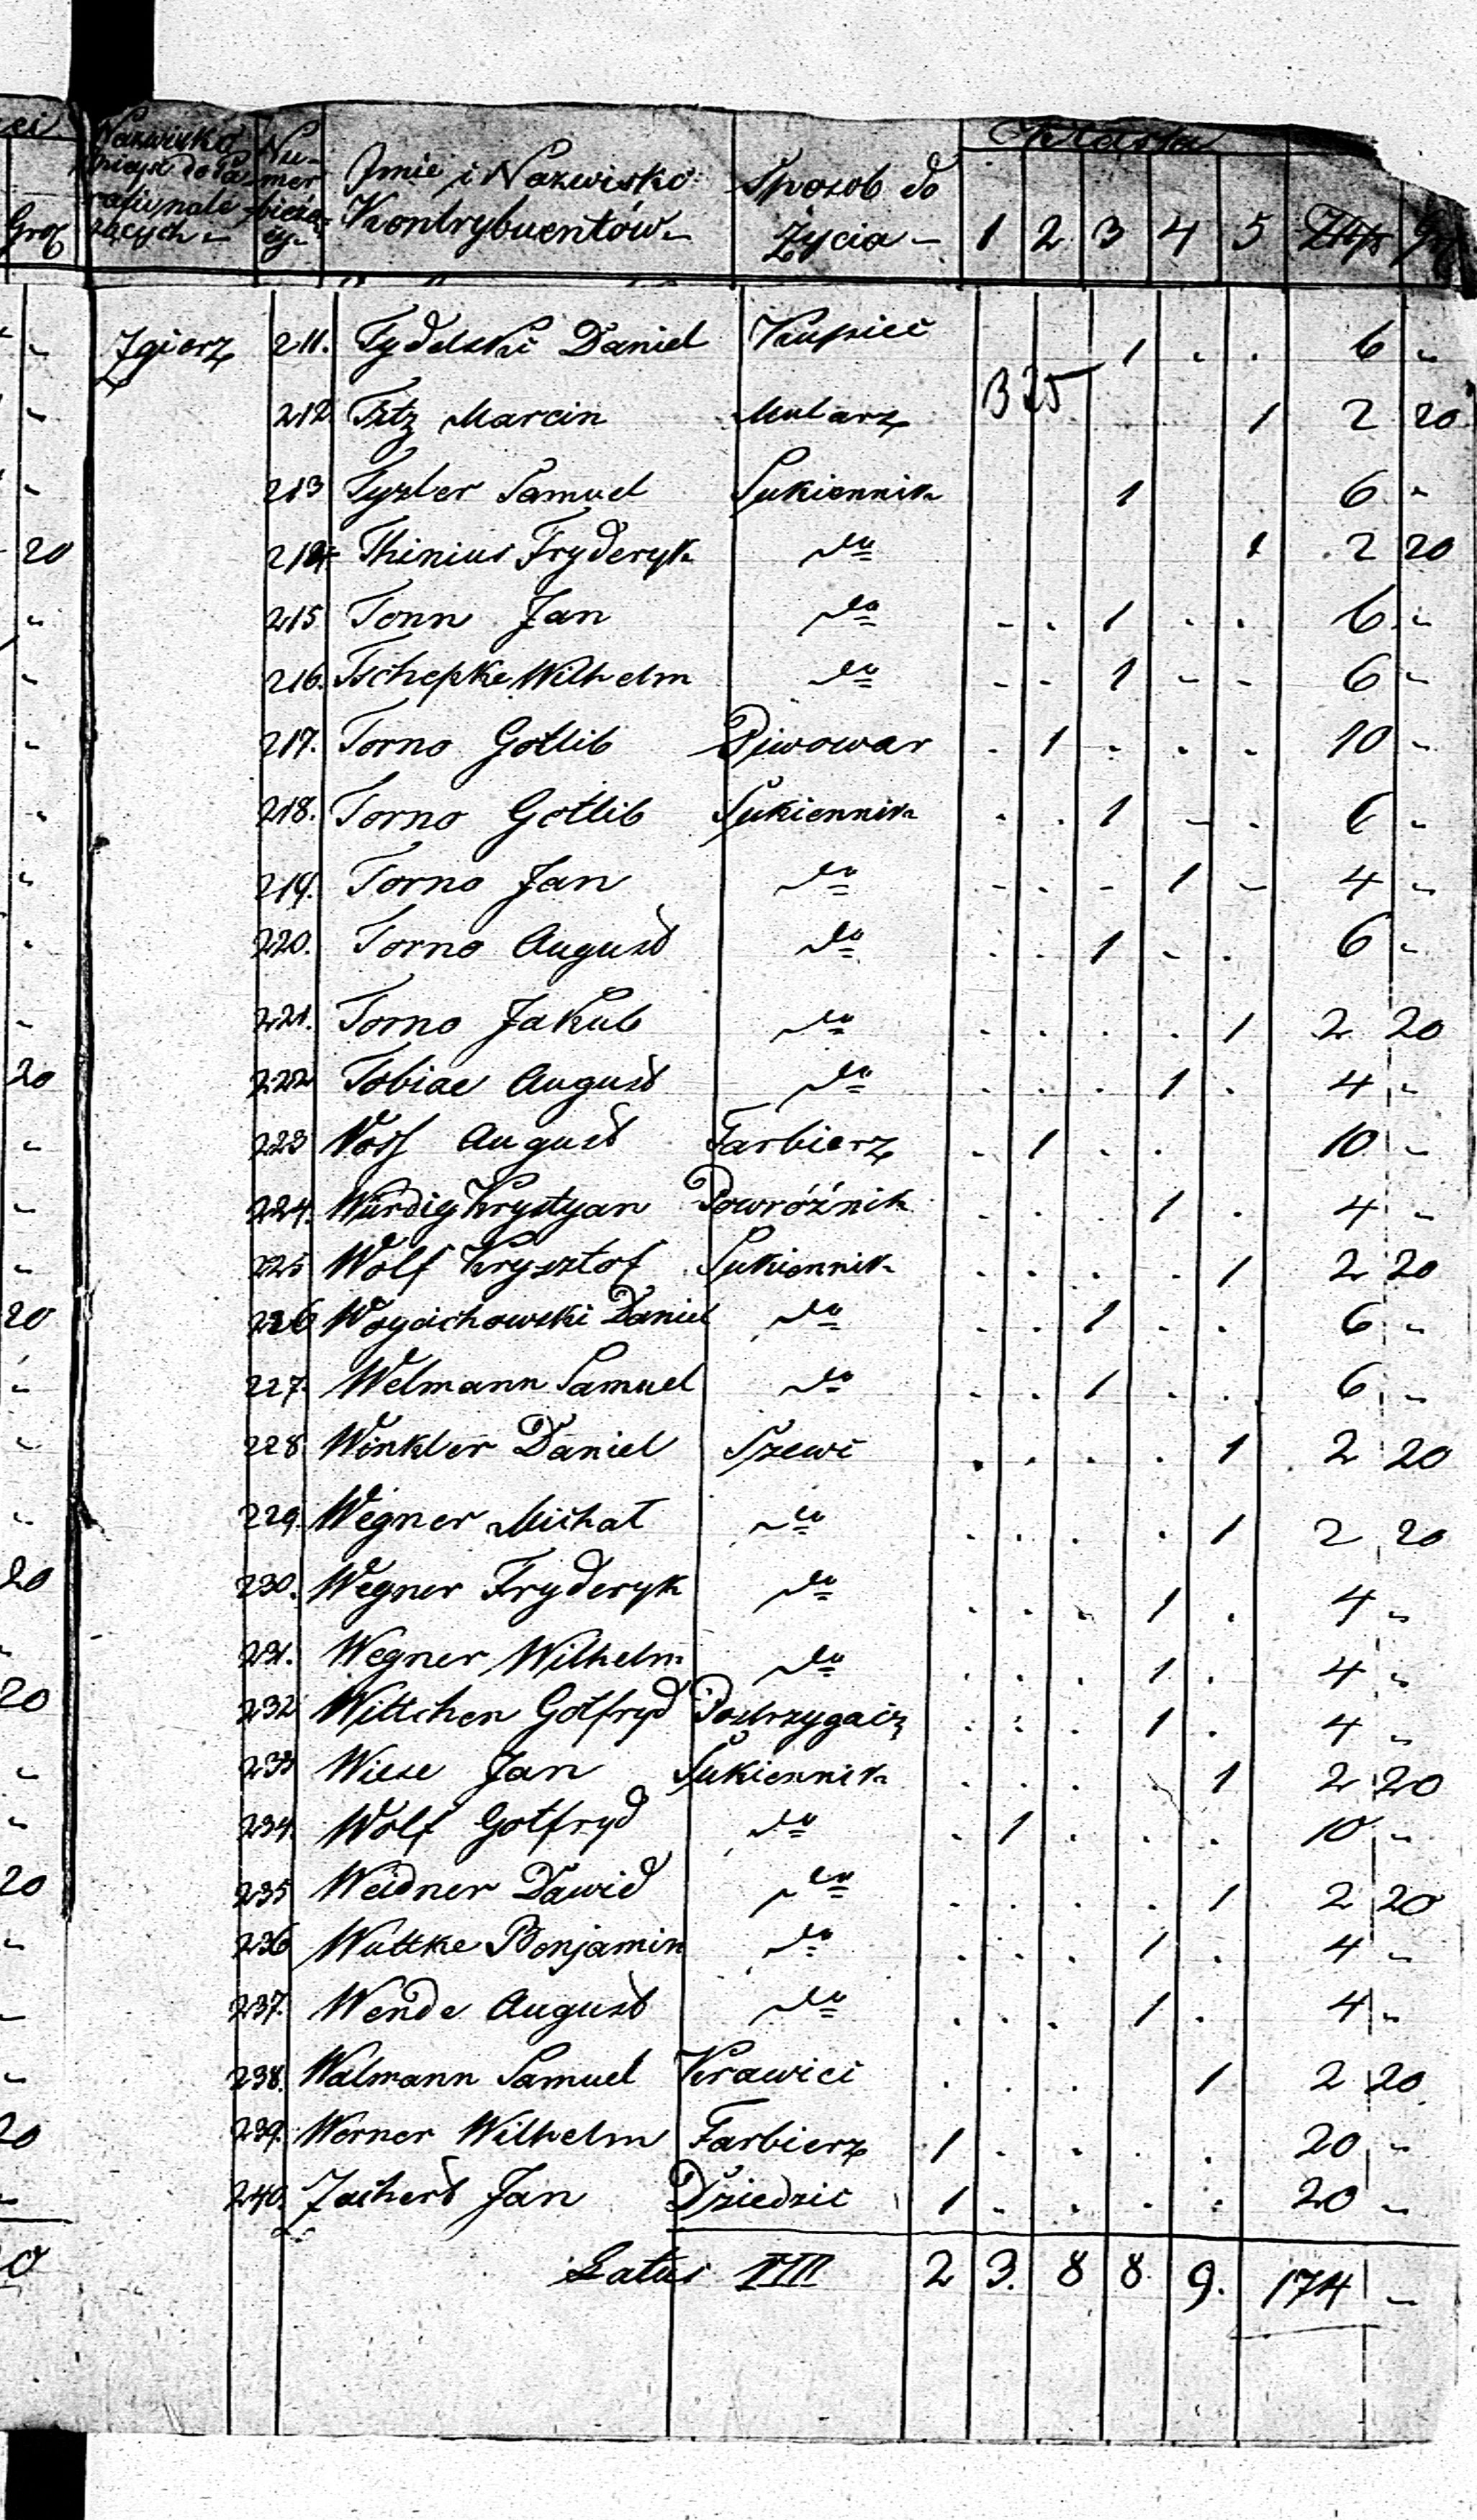 Nazwisko Nu- Imie i Nazwisko Sposob do Klassa
Kontrybuentów Życia 1 2 3 4 5 Złtp Gr
Grof
Zgierz 211. Tydelski Daniel Kupiec 1 . . 6 "
B 25
" 212 Titz Marcin Mularz 1 2 20
" 213 Tyzler Samuel Sukiennik 1 6 "
20 214 Thinius Fryderyk do 1 2 20
" 215 Tonn Jan do - . 1 . . 6 "
" 216. Tschepke Wilhelm do - - 1 - - 6 "
" 217. Torno Gotlib Piwowar . 1 . . . 10 "
" 218. Torno Gotlib Sukiennik . . 1 - . 6 "
" 219. Torno Jan do - . - 1 - 4 "
" 220. Torno August do . . 1 - . 6 "
" 221. Torno Jakub do . . . . 1 2 20
20 222 Tobiae August do . . . 1 . 4 "
" 223 Voss August Farbierz . 1 . . 10 "
" 224. Würdig Krystyan Powróźnik . . . 1 . 4 "
" 225 Wolf Krysztof Sukiennik . . . . 1 2 20
20 226 Woyciechowski Daniel do . . 1 . . 6 "
" 227. Welmann Samuel do . . 1 . . 6 "
" 228. Winkler Daniel Szewc . . . . 1 2 20
" 229. Wegner Michał do . . . . 1 2 20
20 230. Wegner Fryderyk do . . . 1 . 4 "
" 231. Wegner Wilhelm do . . . 1 . 4 "
20 232 Wittchen Gotfryd Postrzygacz . . . 1 . 4 "
" 233 Wiese Jan Sukiennik . . . . 1 2 20
" 234. Wolf Gotfryd do . 1 . . . 10 "
20 235 Weidner Dawid do . . . . 1 2 20
" 236 Wuttke Benjamin do . . . 1 . 4 "
" 237. Wende August do . . . 1 . 4 "
" 238. Walmann Samuel Krawiec . . . . 1 2 20
20 239. Werner Wilhelm Farbierz 1 . . . . 20 "
" 240. Zachert Jan Dziedzic 1 . . . . 20 "
Latus VIII 2 3. 8 8. 9. 174 "